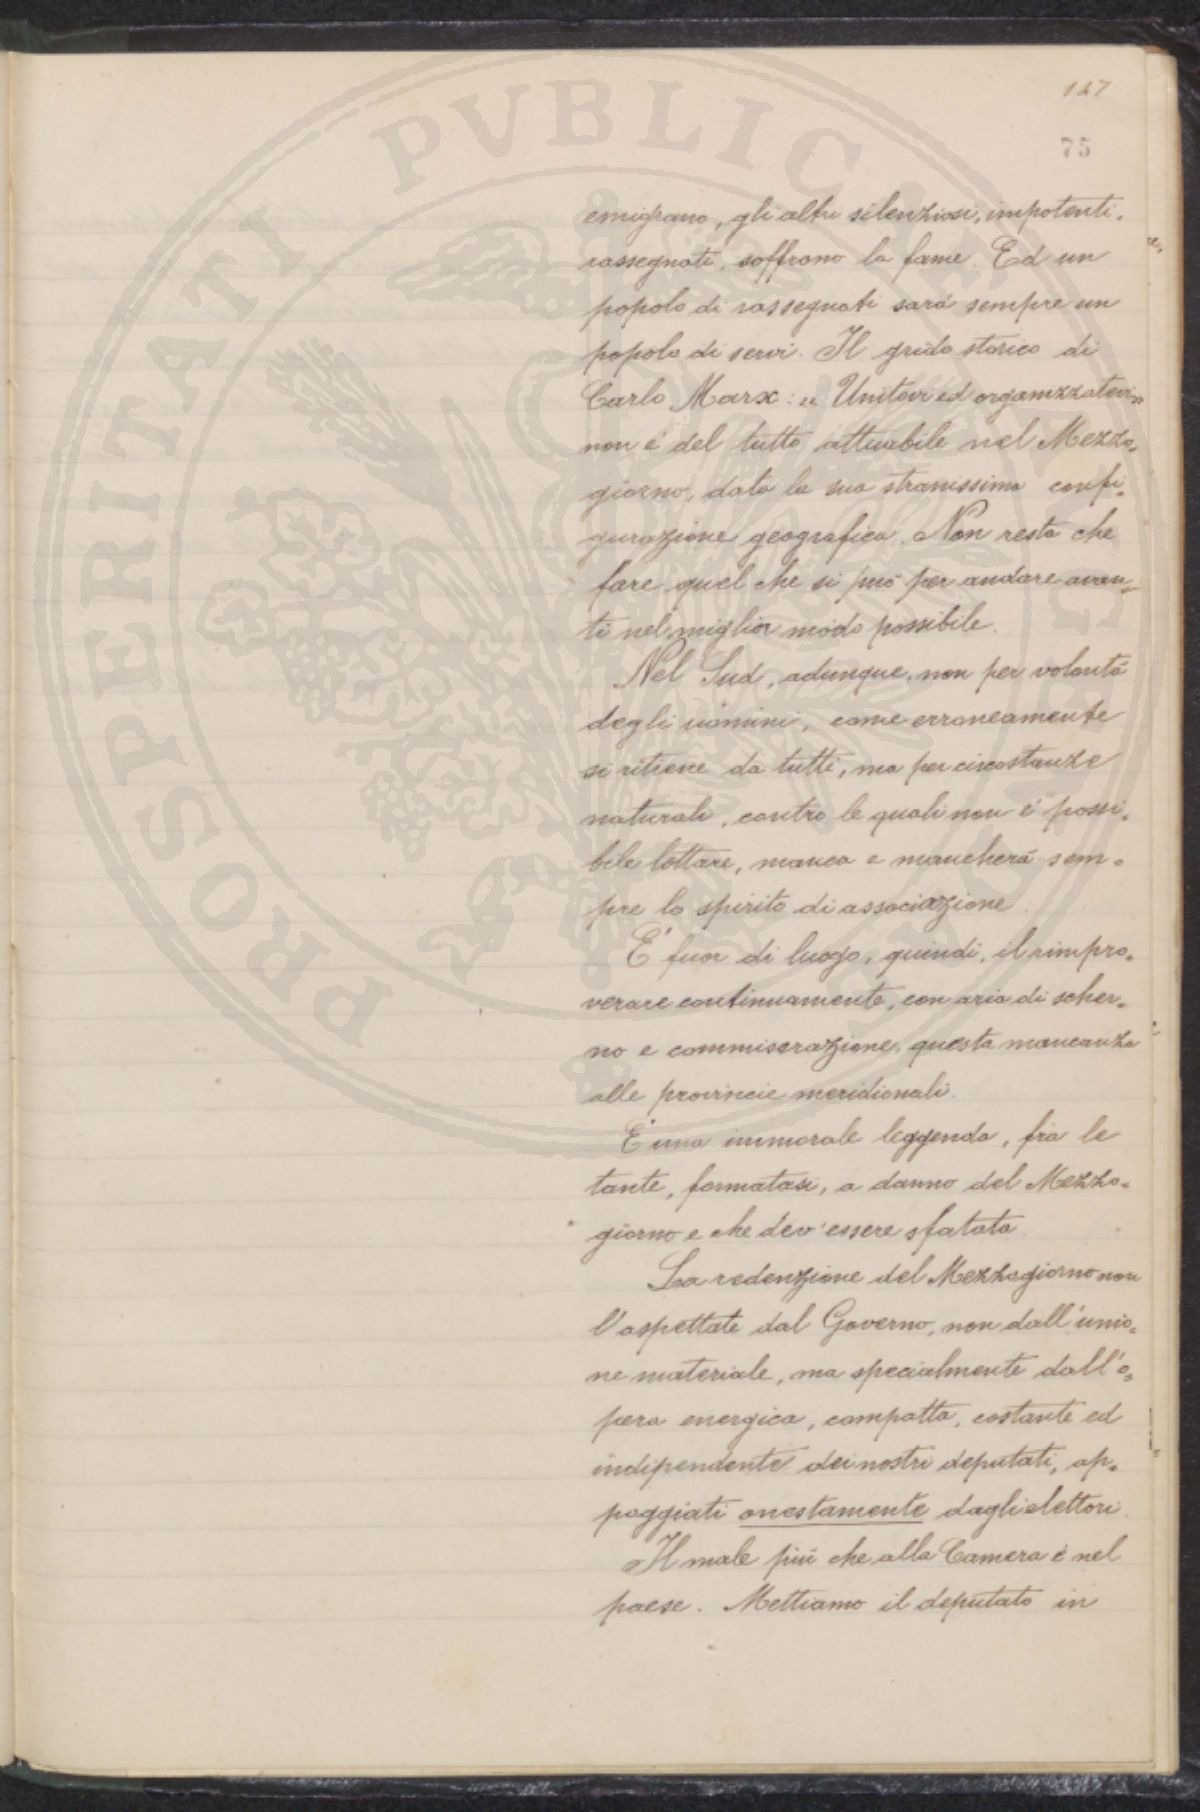 147
75
emigrano, gli altri silenziosi, impotenti,
rassegnati, soffrono la fame. Ed un
popolo di rassegnati sarà sempre un
popolo di servi. Il grido storico di
Carlo Marx: « Unitevi ed organizzatevi»
non é del tutto attuabile nel Mezzo=
giorno, data la sua stranissima confi=
gurazione geografica. Non resta che
fare quel che si può per andare avan=
ti nel miglior modo possibile.
Nel Sud, adunque, non per volontá
degli uomini, come erroneamente
si ritiene da tutti, ma per circostanze
naturali, contro le quali non é possi=
bile lottare, manca e mancherá sem=
pre lo spirito di associazione.
É fuor di luogo, quindi, il rimpro=
verare continuamente, con aria di scher=
no e commiserazione, questa mancanza
alle provincie meridionali.
É una immorale leggenda, fra le
tante, formatasi, a danno del Mezzo=
giorno e che dev'essere sfatata.
La redenzione del Mezzogiorno non
l'aspettate dal Governo, non dall'unio=
ne materiale, ma specialmente dall'o=
pera energica, compatta, costante ed
indipendente dei nostri deputati, ap=
poggiati onestamente dagli elettori.
Il male piú che alla Camera é nel
paese. Mettiamo il deputato in
PROSPERITATI PVBLICAE